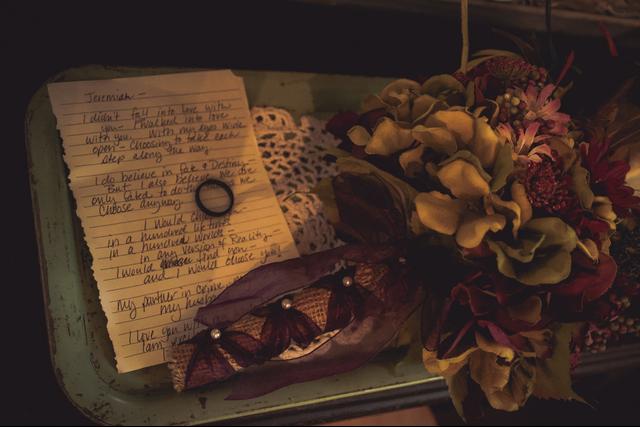 Jeremiah -
I didn't fall into love with
you - I walked into love
with you. With my eyes wide
open - choosing to take each
step along the way
I do believe in Fate & Destiny -
But I also believe we are
only fated to do the
choose anyway
I would choose
in a hundred lifetimes
in a hundred worlds -
in any version of Reality -
I would find you
and I would choose you
My partner in crime
my
I love you
I am